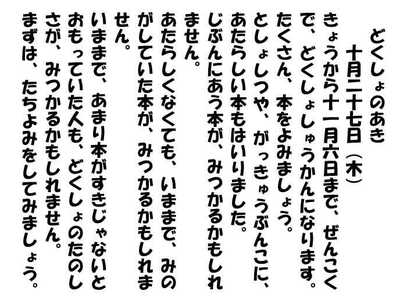 どくしょのあき
十月二十七日（木）
きょうから十一月六日まで、ぜんこく
で、どくしょしゅうかんになります。
たくさん、本をよみましょう。
としょしつや、がっきゅうぶんこに、
あたらしい本もはいりました。
じぶんにあう本が、みつかるかもしれ
ません。
あたらしくなくても、いままで、みの
がしていた本が、みつかるかもしれま
せん。
いままで、あまり本がすきじゃないと
おもっていた人も、どくしょのたのし
さが、みつかるかもしれません。
まずは、たちよみをしてみましょう。